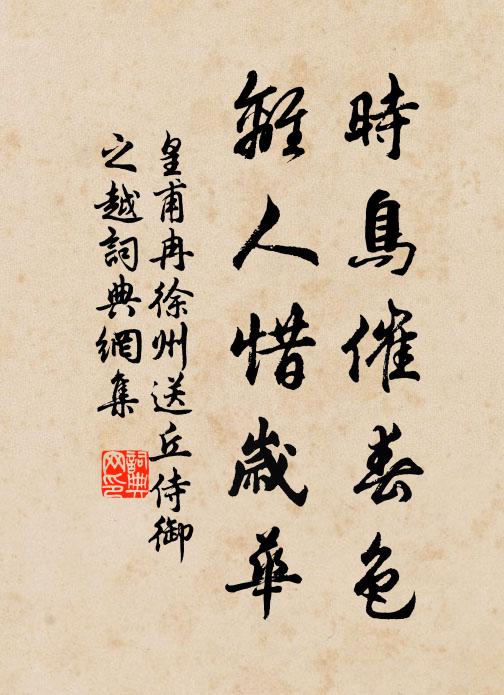 時鳥催春色
離人惜歲華
皇甫冉徐州送丘侍御
之越詞典網集
詞典網印